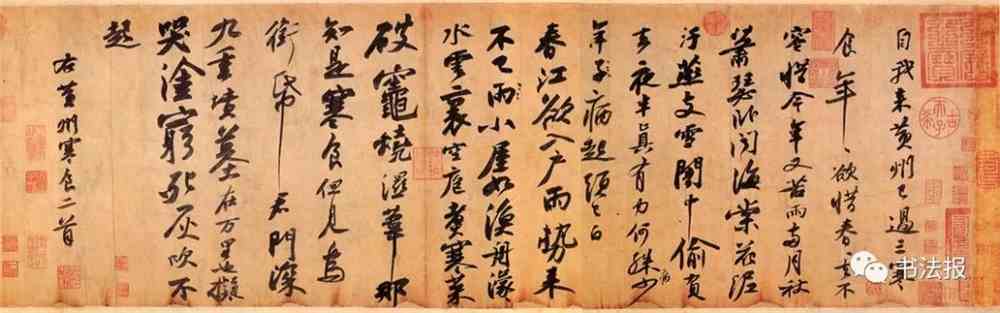 自我来黄州已過三寒
食年〻欲惜春春去不
容惜今年又苦雨兩月秋
蕭瑟卧聞海棠花泥
汙燕支雪闇中偷負
去夜半真有力何殊病少
年子病起頭已白
春江欲入户雨勢来
不已雨小屋如漁舟濛〻
水雲裏空庖煮寒菜
破竈燒濕葦那
知是寒食但見烏
銜帋君門深
九重墳墓在万里也擬
哭塗窮死灰吹不
起
右黄州寒食二首
书法报